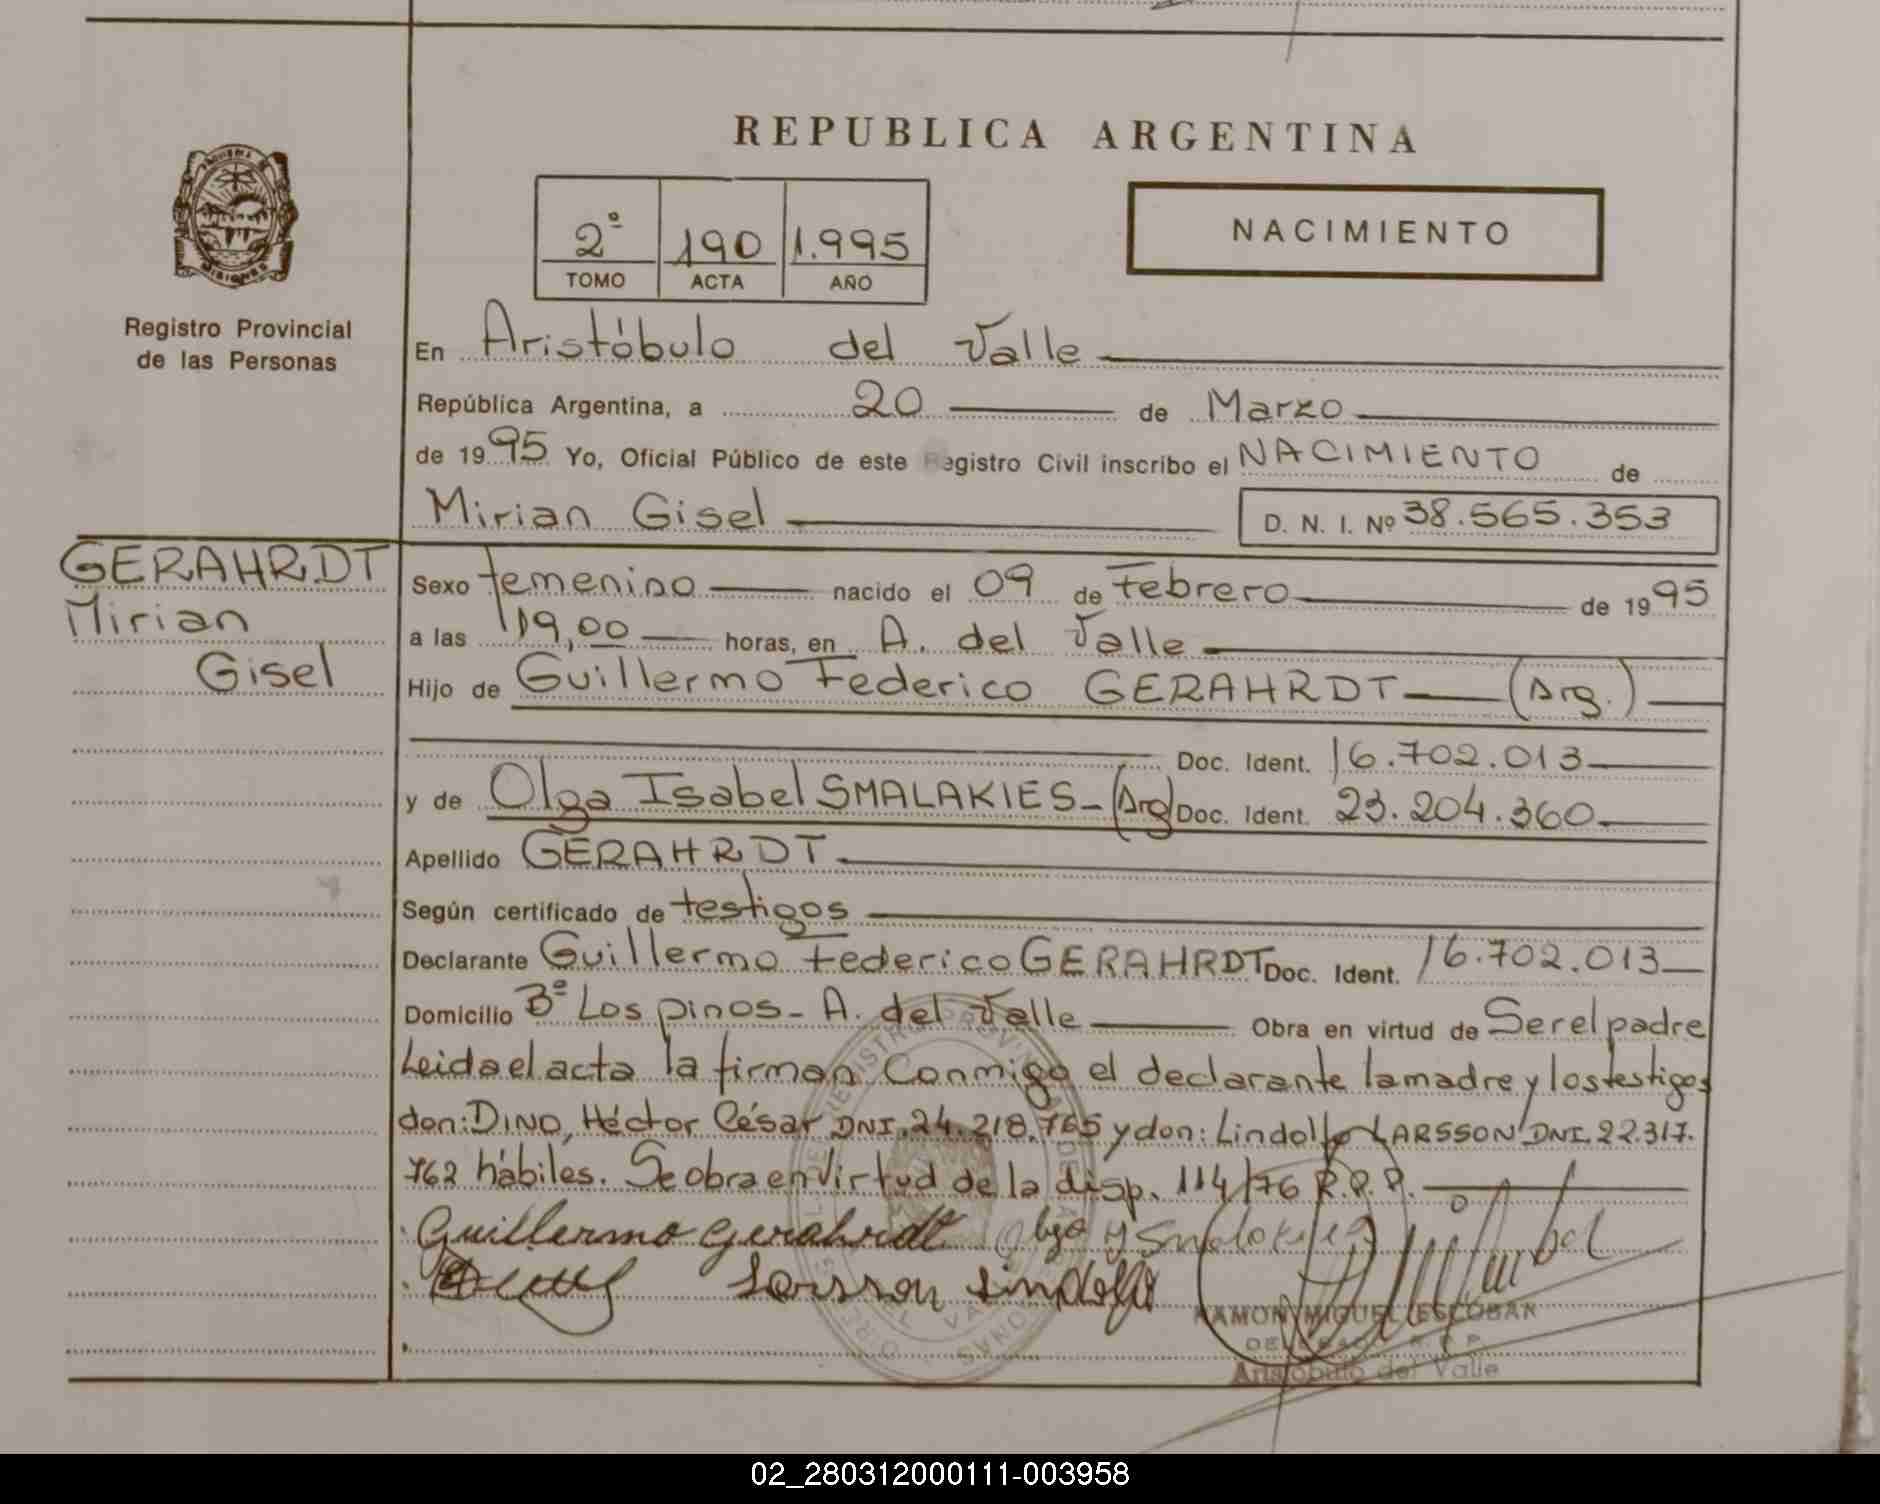 REPUBLICA ARGENTINA
2º 190 1.995
TOMO ACTA AÑO
NACIMIENTO
Registro Provincial
de las Personas
En Aristóbulo del Valle
República Argentina, a 20 de Marzo
de 1995 Yo, Oficial Público de este Registro Civil inscribo el NACIMIENTO de
Mirian Gisel D. N. I. Nº 38.565.353
GERAHRDT
Mirian
Gisel
Sexo femenino nacido el 09 de Febrero de 1995
a las 19,00 horas, en A. del Valle
Hijo de Guillermo Federico GERAHRDT (Arg.)
Doc. Ident. 16.702.013
y de Olga Isabel SMALAKIES - (Arg) Doc. Ident. 23.204.360
Apellido GERAHRDT
Según certificado de testigos
Declarante Guillermo Federico GERAHRDT Doc. Ident. 16.702.013
Domicilio Bº Los pinos - A. del Valle Obra en virtud de Ser el padre
Leida el acta la firman Conmigo el declarante la madre y los testigos
don: DINO, Héctor César DNI. 24.218.765 y don: Lindolfo LARSSON DNI. 22.317.
762 hábiles. Se obra en Virtud de la disp. 114/76 R.P.P.
Guillermo Gerahrdt
Larsson Lindolfo
RAMON MIGUEL ESCOBAR
DELEGADO R. P. P.
Aristóbulo del Valle
02_280312000111-003958